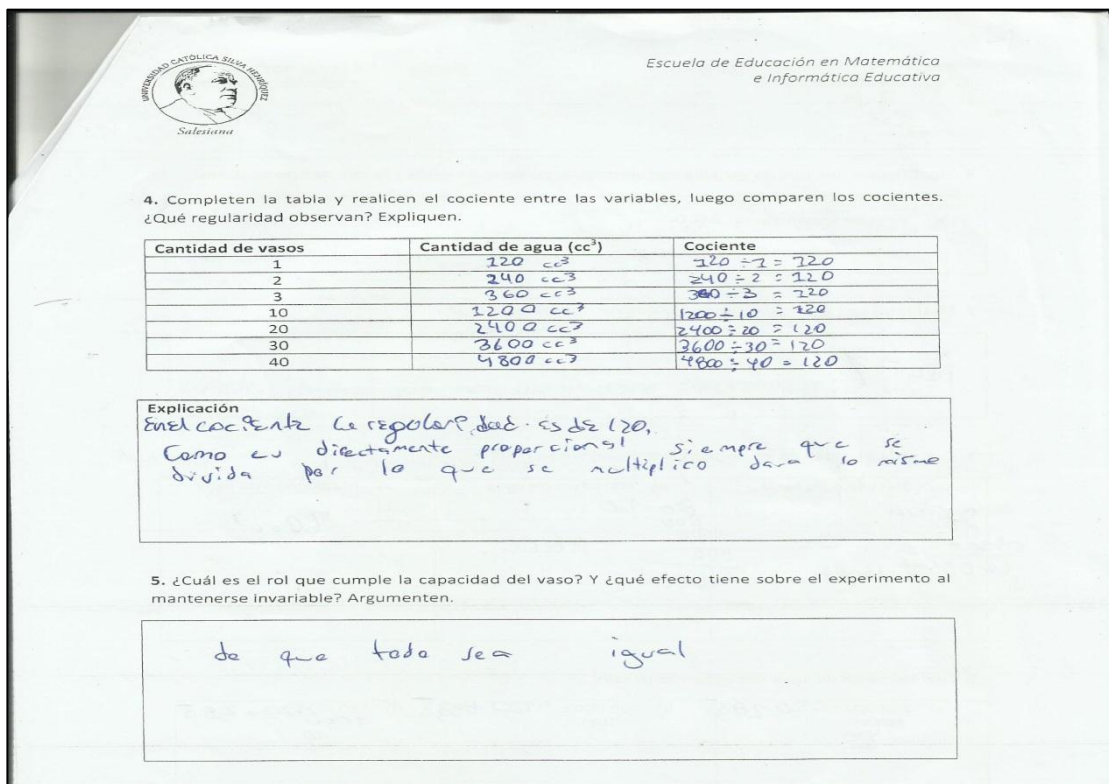 UNIVERSIDAD CATÓLICA SILVA HENRÍQUEZ
Salesiana
Escuela de Educación en Matemática
e Informática Educativa
4. Completen la tabla y realicen el cociente entre las variables, luego comparen los cocientes.
¿Qué regularidad observan? Expliquen.
Cantidad de vasos Cantidad de agua (cc³) Cociente
1 120 cc³ 120 ÷ 1 = 120
2 240 cc³ 240 ÷ 2 = 120
3 360 cc³ 360 ÷ 3 = 120
10 1200 cc³ 1200 ÷ 10 = 120
20 2400 cc³ 2400 ÷ 20 = 120
30 3600 cc³ 3600 ÷ 30 = 120
40 4800 cc³ 4800 ÷ 40 = 120
Explicación
En el cociente la regularidad es de 120,
Como es directamente proporcional siempre que se
divida por lo que se multiplico dara lo mismo
5. ¿Cuál es el rol que cumple la capacidad del vaso? Y ¿qué efecto tiene sobre el experimento al
mantenerse invariable? Argumenten.
de que todo sea igual